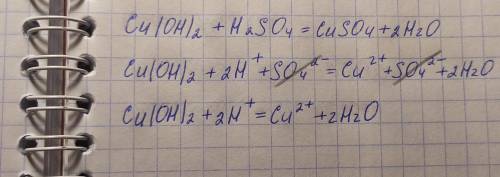 Cu(OH)₂ + H₂SO₄ = CuSO₄ + 2H₂O
Cu(OH)₂ + 2H⁺ + SO₄²⁻ = Cu²⁺ + SO₄²⁻ + 2H₂O
Cu(OH)₂ + 2H⁺ = Cu²⁺ + 2H₂O